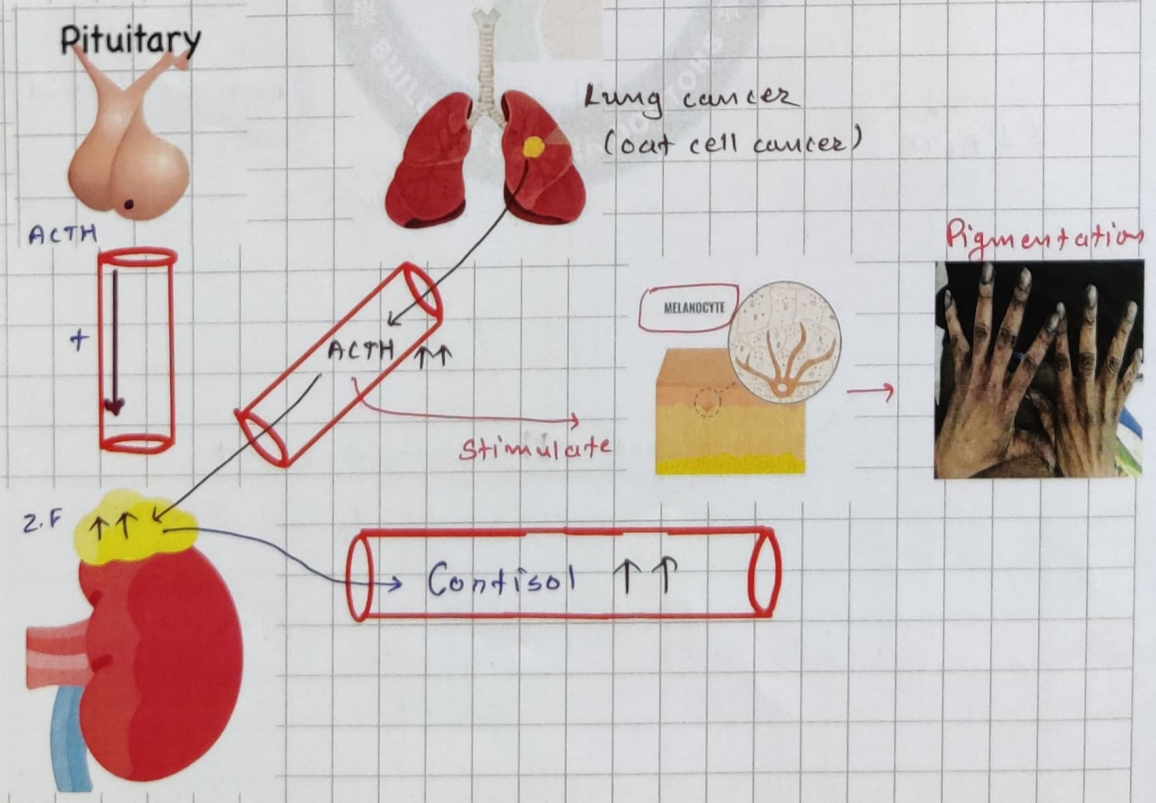 Pituitary
Lung cancer
(oat cell cancer)
ACTH
+
ACTH ↑↑
Stimulate
MELANOCYTE
Pigmentation
Z.F ↑↑
Cortisol ↑↑